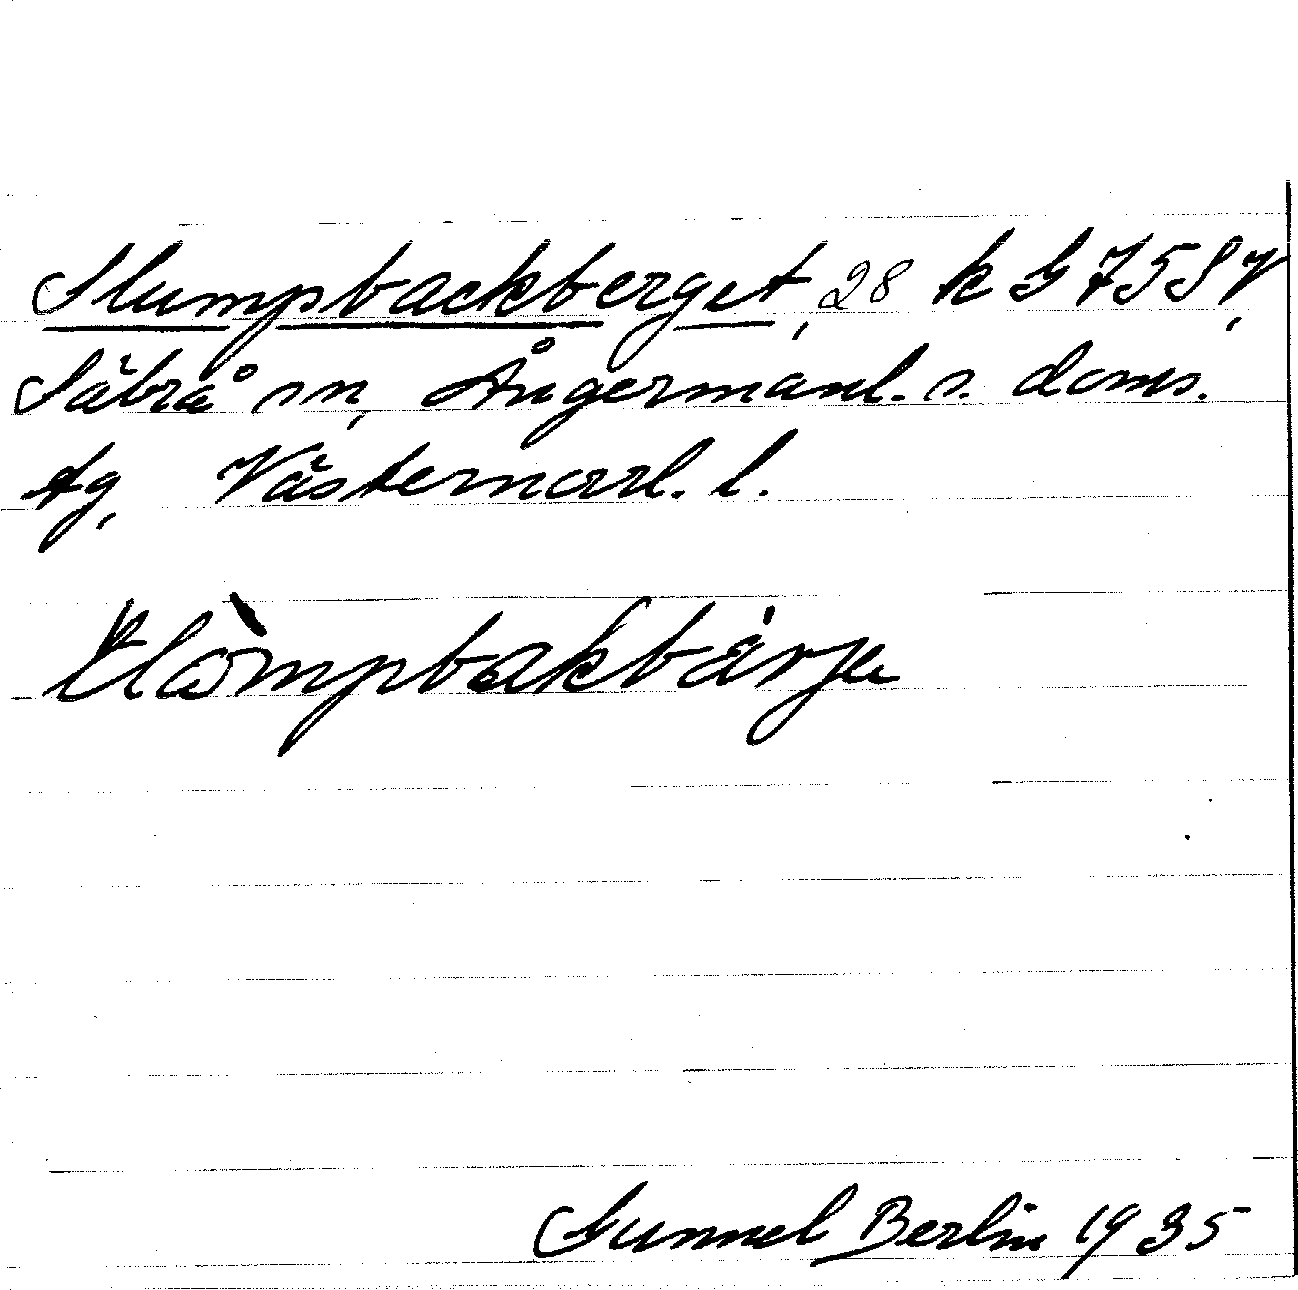 Slumpbackberget, 28 k G 7587,
Säbrå sn, Ångermanl. s. doms.
tg, Västernorrl. l.
Slòmpbakbärje
Gunnel Berlin 1935